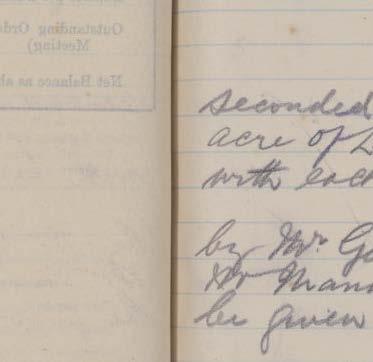 Outstanding Orde
Meeting)
Net Balance as ab
seconded
acre of L
with each
by Mr. Ga
Mr Mann
be given